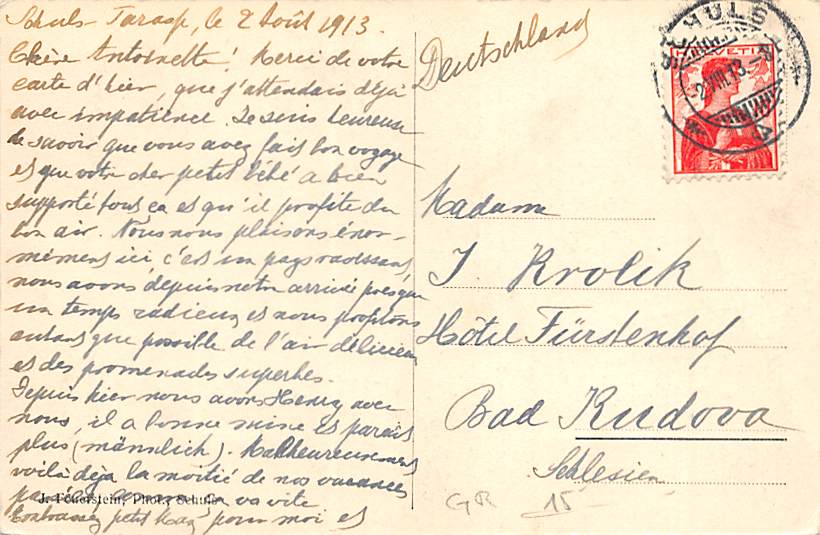 Schuls-Tarasp, le 2 Août 1913.
Chère Antoinette! Merci de votre
carte d'hier, que j'attendais déjà
avec impatience. Je suis heureuse
de savoir que vous avez fait bon voyage
et que votre cher petit bébé a bien
supporté tous ça et qu'il profite du
bon air. Nous nous plaisons énor-
mément ici c'est un pays ravissant,
nous avons depuis notre arrivée presque
un temps radieux et nous profitons
autant que possible de l'air délicieux
et des promenades superbes.
Depuis hier nous avons Henry avec
nous, il a bonne mine et paraît
plus (männlich). Malheureusement
voilà déjà la moitié de nos vacances
va vite
J. Feuerstein, Phot., Schuls
Embrassez petit pour moi et
Deutschland
HELVETIA
SCHULS
2.VIII.13
Madame
J. Krolik
Hôtel Fürstenhof
Bad Kudova
Schlesien
GR 15